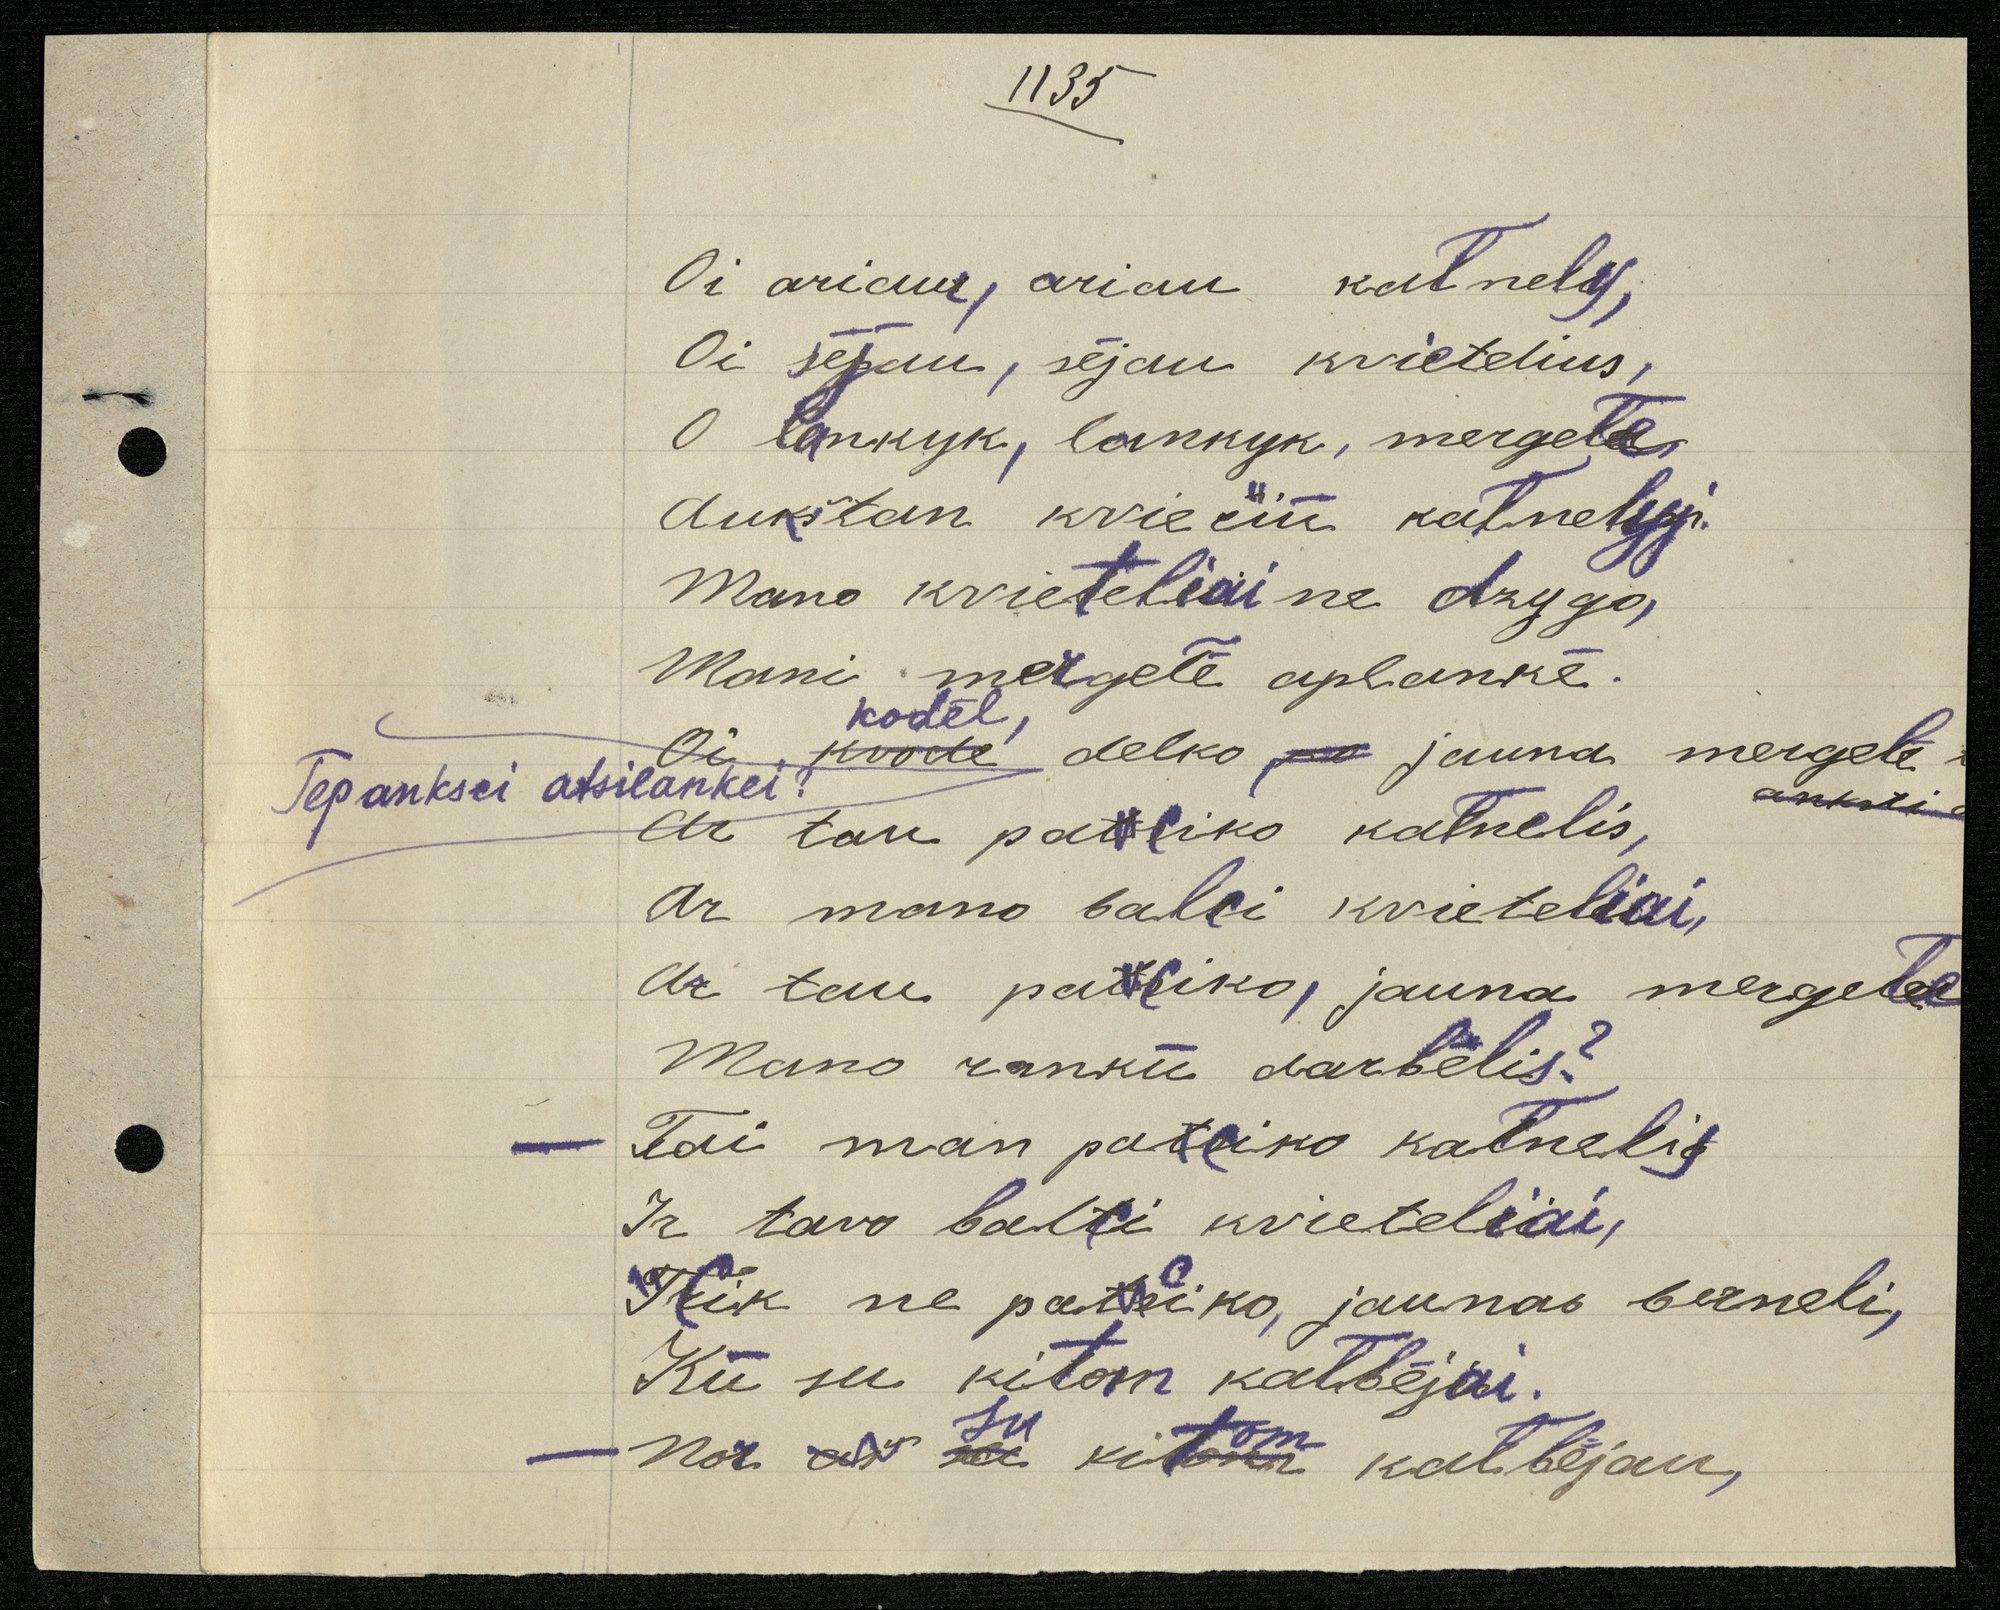 1135
Oi ariau, ariau kalnely,
Oi sējau, sējau kvietelius,
O lankyk, lankyk, mergele,
Aukštan kviečiū kalnelyj.
Mano kvieteliai ne dzygo,
Mani mergelē aplankē.
kodēl,
Oi kvode delko, jauna mergele
Tep anksci atsilankei?
anksti
Ar tau patciko kalnelis,
Ar mano balci kvieteliai,
Ar tau patciko, jauna mergele
Mano rankū darbēlis?
— Tai man patciko kalnelis
Ir tavo balci kvieteliai,
Tcik ne patciko, jaunas berneli,
Kū su kitom kalbējai.
— Nor aš su kitom kalbējau,